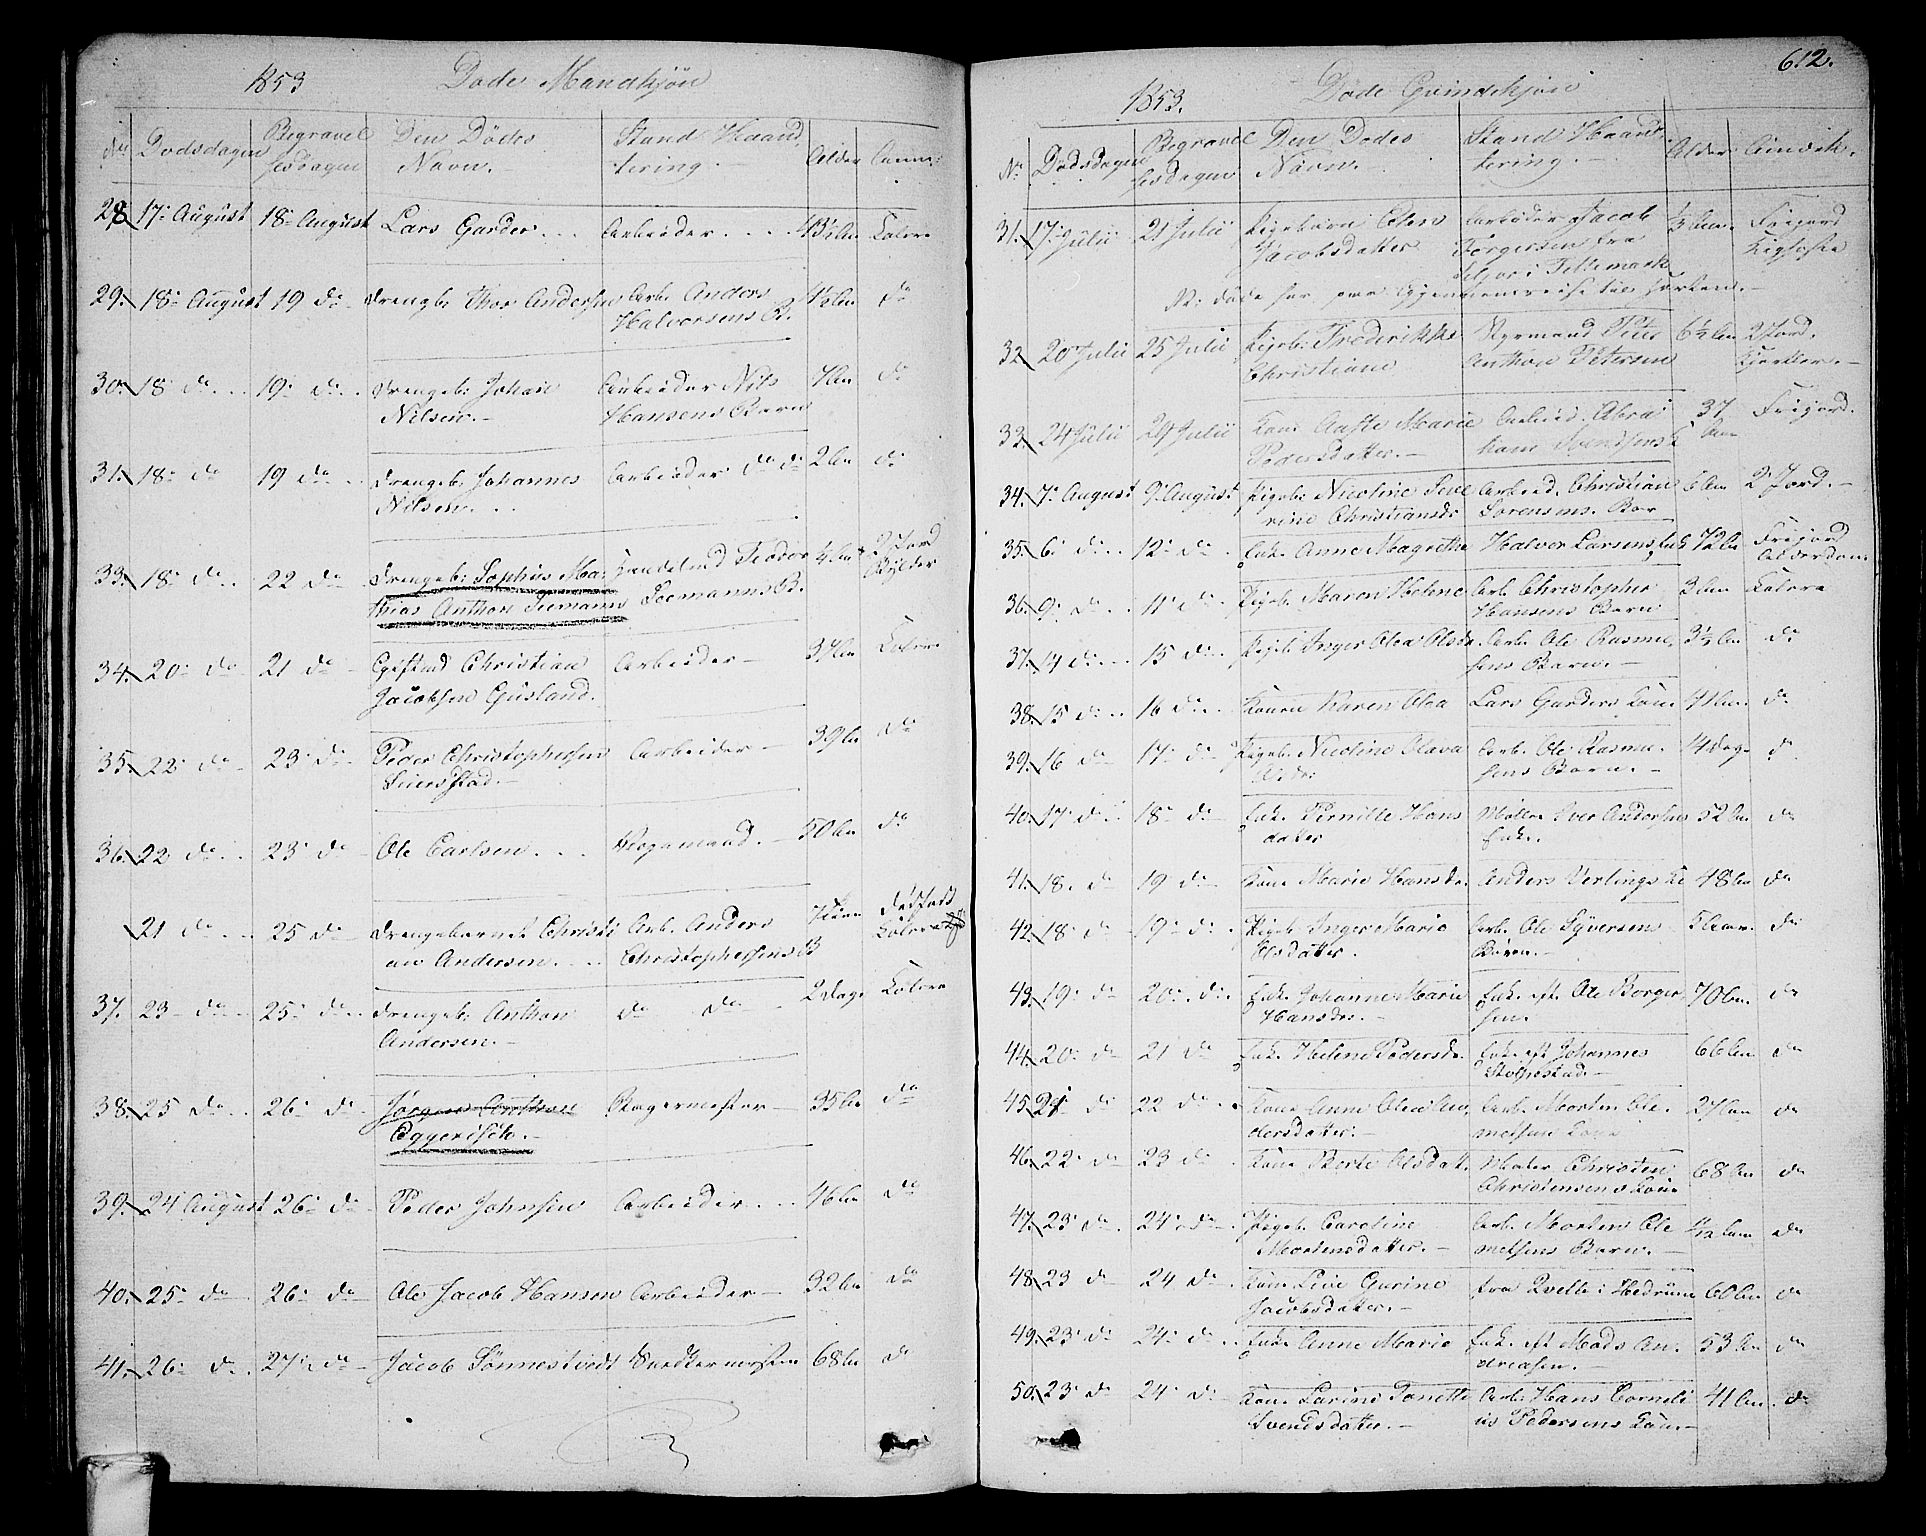 1853 Døde Mandkjøn
No Dødsdagen Begravel Den Dødes Stand Haand, Alder Anm:
sesdagen Navn. tering.
28 17. August 18. August Lars Garder Arbeider 43½ Aar Kolera
29. 18. August 19 do Drengb: Thor Andersen Arb. Anders do
Halvorsens B.
30. 18 do 19. do Drengeb: Johan Arbeider Nils do
Nilsen. Hansens Barn
31. 18. do 19 do Drengeb: Johannes Arbeider do do 2 Aar do
Nilsen.
33. 18. do 22 do Drengeb: Sophus Ma-
thias Anthon Teemann Teemanns B.
34. 20. do 21 do Christian Arbeider
Jacobsen Gusland.
37 Aar Kolera
35. 22. do 23. do Peder Christophersen Arbeider 39 Aar do
36. 22 do 23. do Ole Carlsen 50 Aar do
21 do 25 do Drengebarnet Christi Arb. Anders
an Andersen. Christophersens B
37. 23 do 25. do Drengeb: Anthon do do 2 Dage Kolera
Andersen.
38. 25 do 26. do Jørgen Anthon Bagermester 35 Aar do
39. 24 August 26. do Peder Johnsen Arbeider 46 Aar do
40. 25. do 26. do Ole Jacob Hansen Arbeider 32 Aar do
41. 26. do 27. do Jacob Sønnestvedt Snedkermester 68 Aar do
612.
1853. Døde Qvindekjøn
No Dødsdagen Begravel Den Dødes Stand Haand, Alder Anmerk.
sesdagen Navn. tering.
31. 17. Julii 21 Julii Pigebarn Arbeider Jacob
Jacobsdatter Torgersen fra
i Tellemark
N: døde her paa Gjennemreise til Horten.
32 20 Julii 25 Julii Pigeb: Frederikke Styrmand 6½ Aar 2 Jord,
Christiane Anthon Petersen
33. 24 Julii 29 Julii Kone Aaste Marie Arbeid. Abra- 37 Frijord.
Pedersdatter. ham Svendsens K Aar
34. 7. August 9. August Pigeb: Nicoline Seve Arbeid. Christian 6 Aar 2 Jord.
rine Christiansdr Sørensens Bar
35. 6. do 12. do Enke Anne Magrethe Halvor Larsens Enk 72 Aar Frijord
Alderdom
36. 9. do 11. do Pigeb. Maren Helene Arb. Christopher 3 Aar Kolera
Hansens Barn
37. 14 do 15 do Pigeb: Inger Olea Olsdr Arb. Ole Rasmu, 3½ Aar do
sens Barn.
38. 15 do 16 do Konen Karen Olea Lars Garders Kone 41 Aar do
39. 16 do 17. do Pigeb. Nicoline Olava Arb. Ole Rasmu- 4 Dage do
Olsdr: sens Barn.
40. 17 do 18. do Enke Pernille Hans Møller Iver Andersens 52 Aar do
datter Enke.
41. 18. do 19 do Kone Marie Hansdr. Anders Verlings K 48 Aar do
42. 18. do 19. do Pigeb. Inger Marie Arb. Ole Syversens 5 Aar do
Olsdatter. Barn.
43. 19. do 20. do Enke Johanne Marie Enke eft Ole Borger 70 Aar do
Hansdr. sen.
44. 20. do 21 do Enke Helene Pedersdr. Enke eft Johannes 66 Aar do
Stolpestad.
45. 21 do 22 do Kone Anne Olea An, Arb. Morten Ole. 27 Aar do
dersdatter. melsens Kone
46. 22. do 23 do Kone Berte Olsdatr Maler Christen 68 Aar do
Christensens Kone
47. 23. do 24. do Pigeb. Caroline Arb. Morten Ole do
Mortensdatter. melsens Barn.
48. 23 do 24 do Kone Live Gurine fra Qvelle i Hedrum 60 Aar do
Jacobsdatter.
49. 23. do 24. do Enke Anne Marie Enke eft Mads An, 53 Aar do
dreasen.
50. 23. do 24. do Kone Larine Tonette Arb. Hans Corneli 41 Aar do
Svendsdatter. us Pedersens Kone.